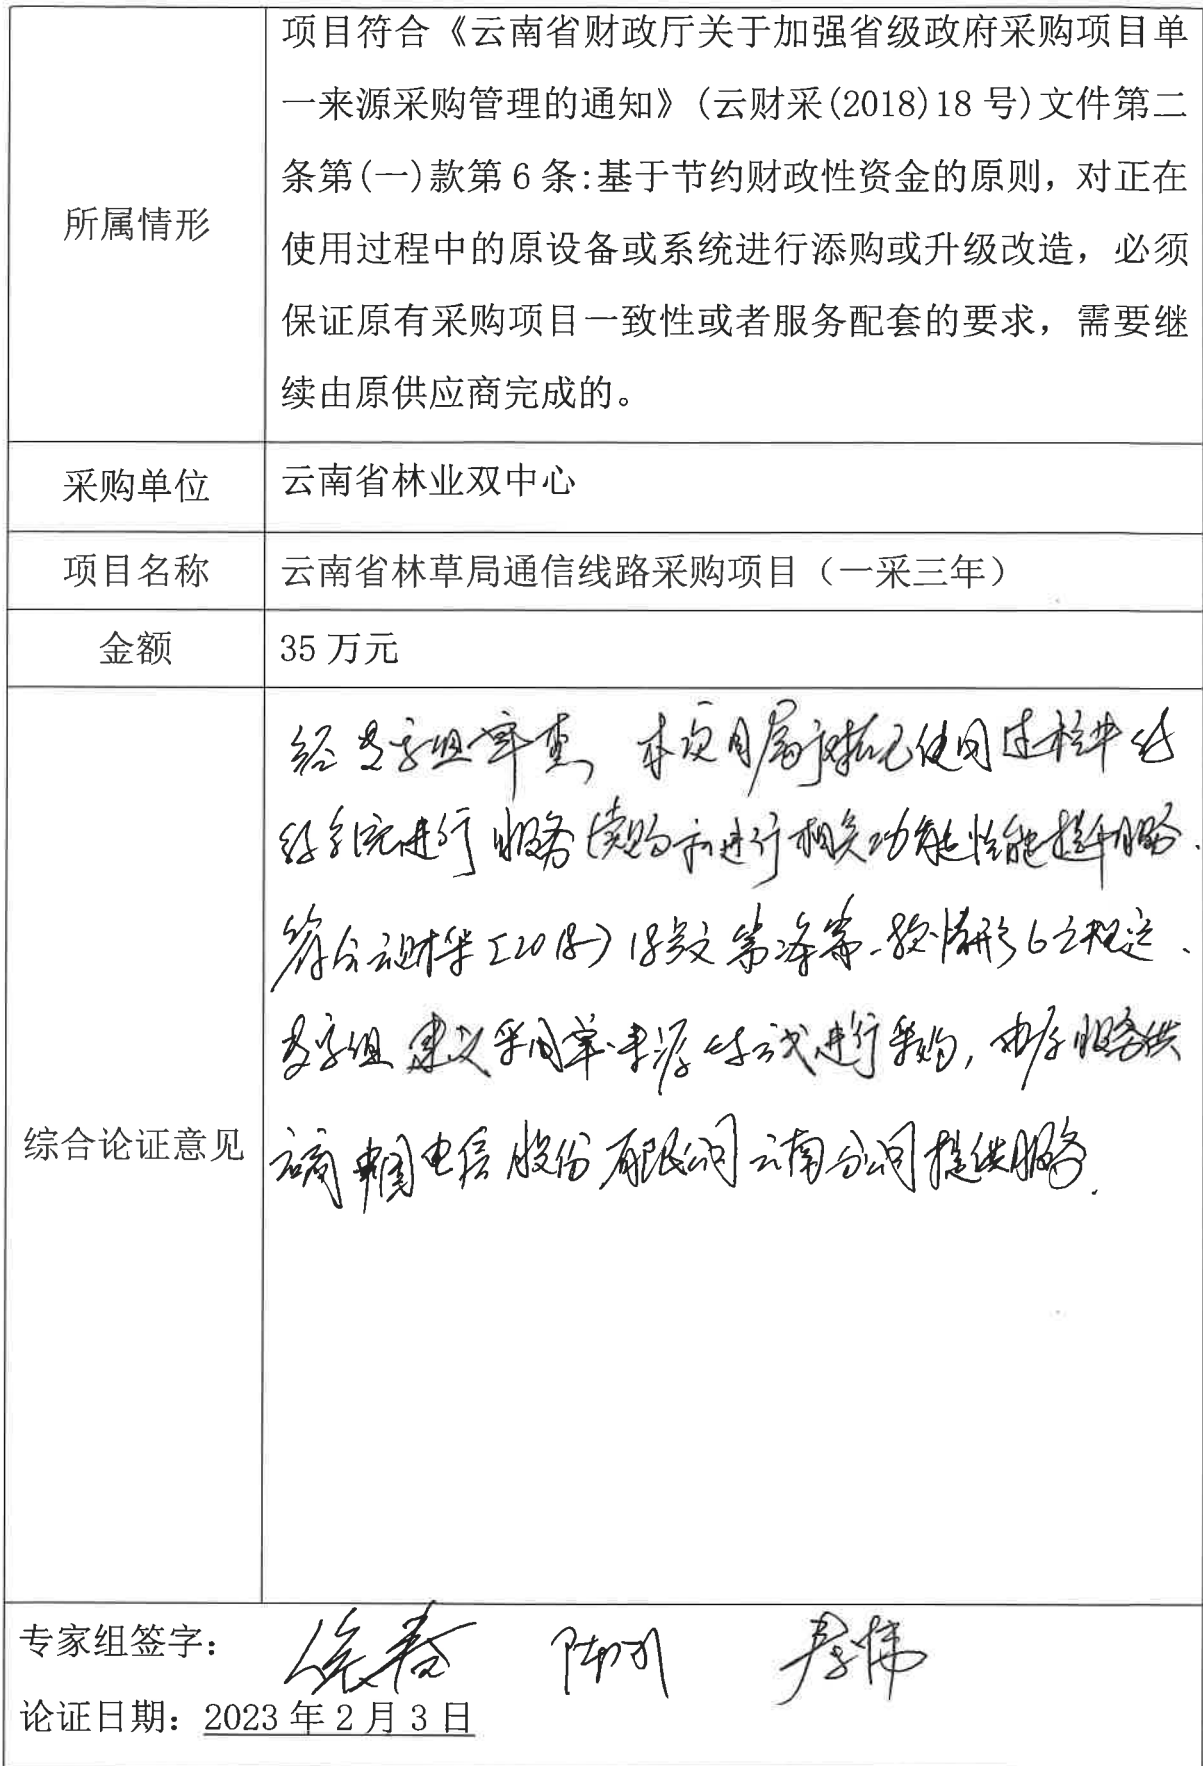 项目符合《云南省财政厅关于加强省级政府采购项目单
一来源采购管理的通知》(云财采(2018)18号)文件第二
条第(一)款第6条:基于节约财政性资金的原则，对正在
所属情形
使用过程中的原设备或系统进行添购或升级改造，必须
保证原有采购项目一致性或者服务配套的要求，需要继
续由原供应商完成的。
采购单位 云南省林业双中心
项目名称 云南省林草局通信线路采购项目（一采三年）
金额 35万元
经专家组审查，本项目属于对已使用过程中的
系统进行服务续购和进行相关功能性能提升服务.
符合云财采［2018］18号文第二条第一款情形6之规定、
专家组建议采用单一来源方式进行采购，由原服务供
综合论证意见
应商中国电信股份有限公司云南分公司提供服务.
专家组签字：
论证日期：2023年2月3日